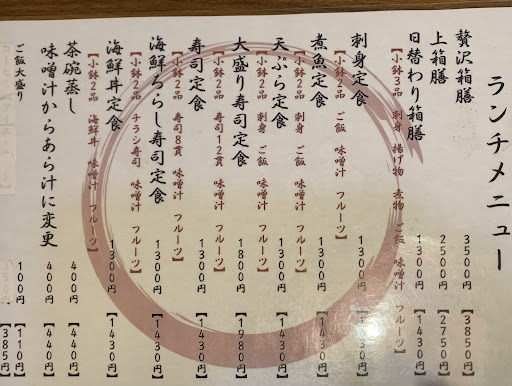 ランチメニュー
贅沢箱膳 3500円 【3850円】
上箱膳 2500円 【2750円】
日替わり箱膳 1300円 【1430円】
【小鉢3品 刺身 揚げ物 煮物 ご飯 味噌汁 フルーツ】
刺身定食 1300円 【1430円】
【小鉢2品 ご飯 味噌汁 フルーツ】
煮魚定食 1300円 【1430円】
【小鉢2品 刺身 ご飯 味噌汁 フルーツ】
天ぷら定食 1300円 【1430円】
【小鉢2品 刺身 ご飯 味噌汁 フルーツ】
大盛り寿司定食 1800円 【1980円】
【小鉢2品 寿司12貫 味噌汁 フルーツ】
寿司定食 1300円 【1430円】
【小鉢2品 寿司8貫 味噌汁 フルーツ】
海鮮ちらし寿司定食 1300円 【1430円】
【小鉢2品 チラシ寿司 味噌汁 フルーツ】
海鮮丼定食 1300円 【1430円】
【小鉢2品 海鮮丼 味噌汁 フルーツ】
茶碗蒸し 400円 【440円】
味噌汁からあら汁に変更 400円 【440円】
ご飯大盛り 100円 【110円】
【385円】